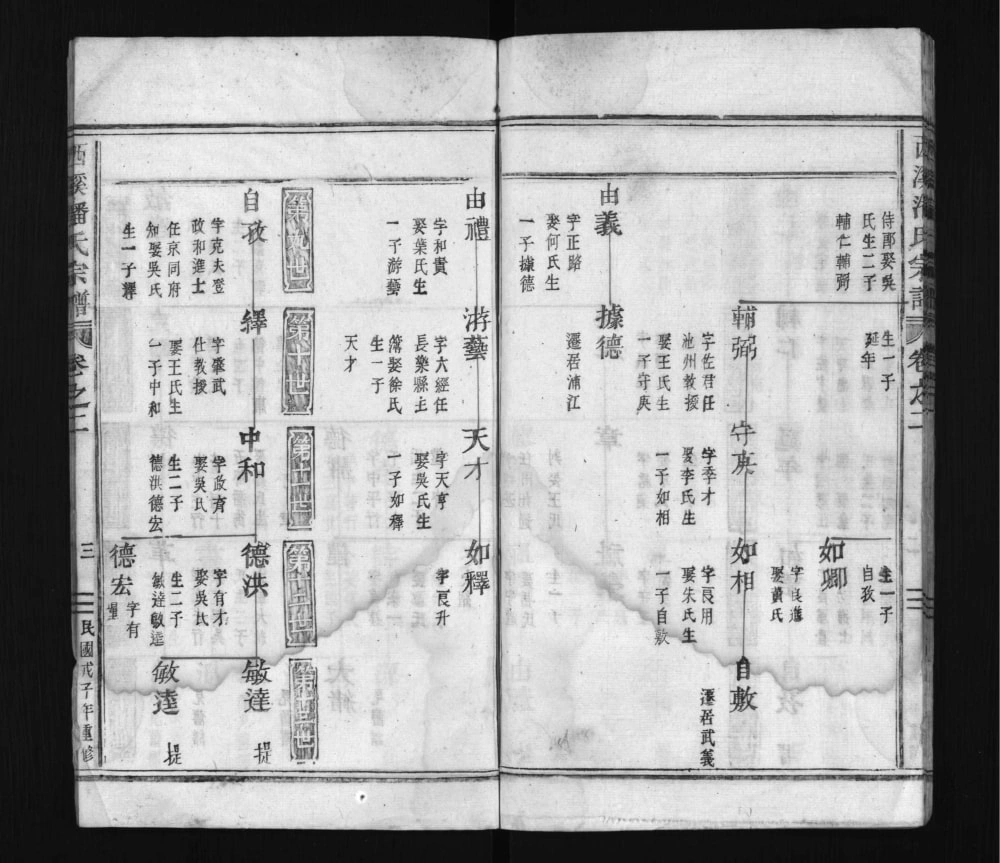 西溪潘氏宗譜
卷之二
侍郎娶吳
氏生二子
輔仁輔弼
生一子
延年
生一子
自孜
如卿
字良進
娶黃氏
輔弼
字佐君任
池州教授
娶王氏生
一子守庚
守庚
字季才
娶李氏生
一子如相
如相
字良用
娶朱氏生
一子自敷
自敷
遷居武義
由義
字正路
娶何氏生
一子據德
據德
遷居浦江
由禮
字和貴
娶葉氏生
一子游藝
游藝
字六經任
長樂縣主
簿娶徐氏
生一子
天才
天才
字天亨
娶吳氏生
一子如釋
如釋
字良升
第九世
第十世
第十一世
第十二世
第十三世
自孜
字克夫登
政和進士
任京同府
知娶吳氏
生一子繹
繹
字肇武
仕教授
娶王氏生
一子中和
中和
字政育
娶吳氏
生二子
德洪德宏
德洪
字有才
娶吳氏
生二子
敏達敏逵
敏達
提
敏逵
提
德宏
字有
西溪潘氏宗譜
卷之二
三
民國戊子年重修